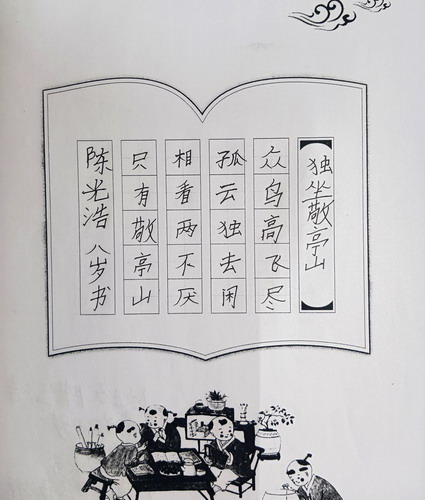 独坐敬亭山
众鸟高飞尽
孤云独去闲
相看两不厌
只有敬亭山
陈光浩 八岁书